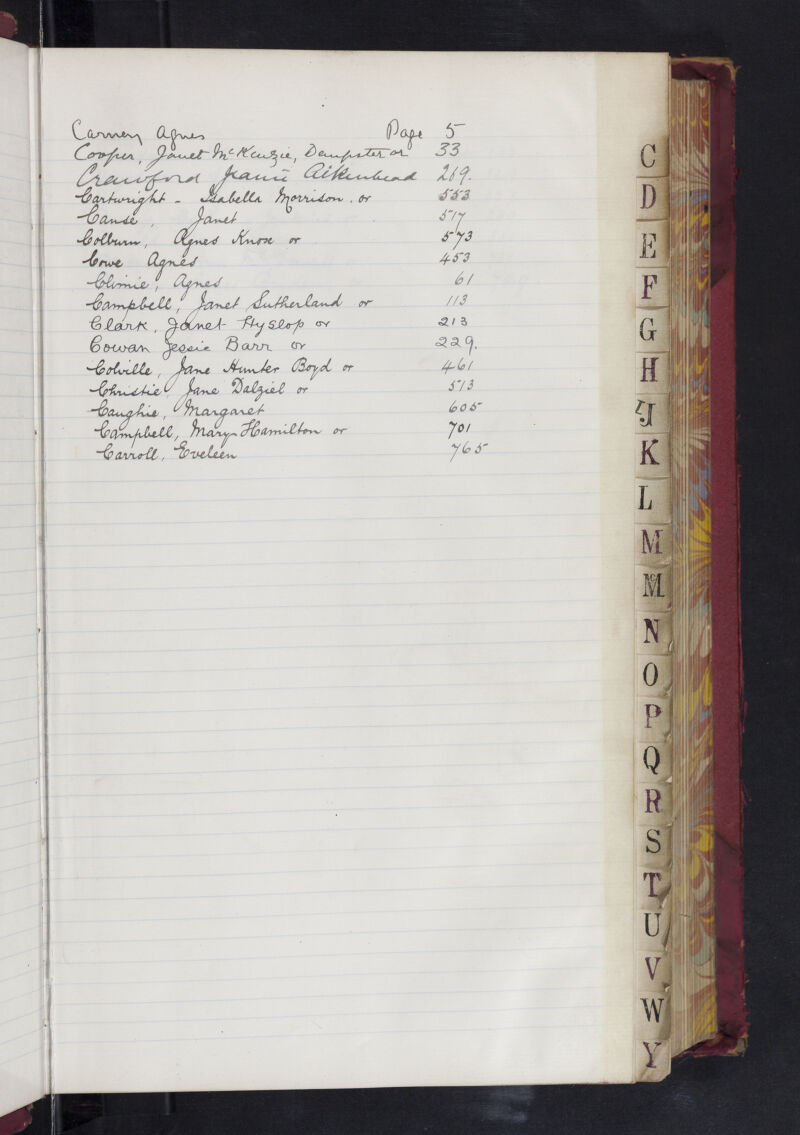 Carney Agnes Page 5
Cooper, Janet McKenzie, Dempster or 33
Crawford Jeanie Aikenhead 269.
Cartwright - Isabella Morrison. or 553
Canse, Janet 517
Colburn, Agnes Knox or 573
Cowe Agnes 453
Climie, Agnes 61
Campbell, Janet Sutherland or 113
Clark, Janet Hyslop or 213
Cowan Jessie Barr or 229.
Colville, Jane Hunter Boyd or 461
Christie, Jane Dalziel or 513
Caughie, Margaret 605
Campbell, Mary Hamilton or 701
Carroll, Eveleen 765
C
D
E
F
G
H
IJ
K
L
M
Mc
N
O
P
Q
R
S
T
U
V
W
Y